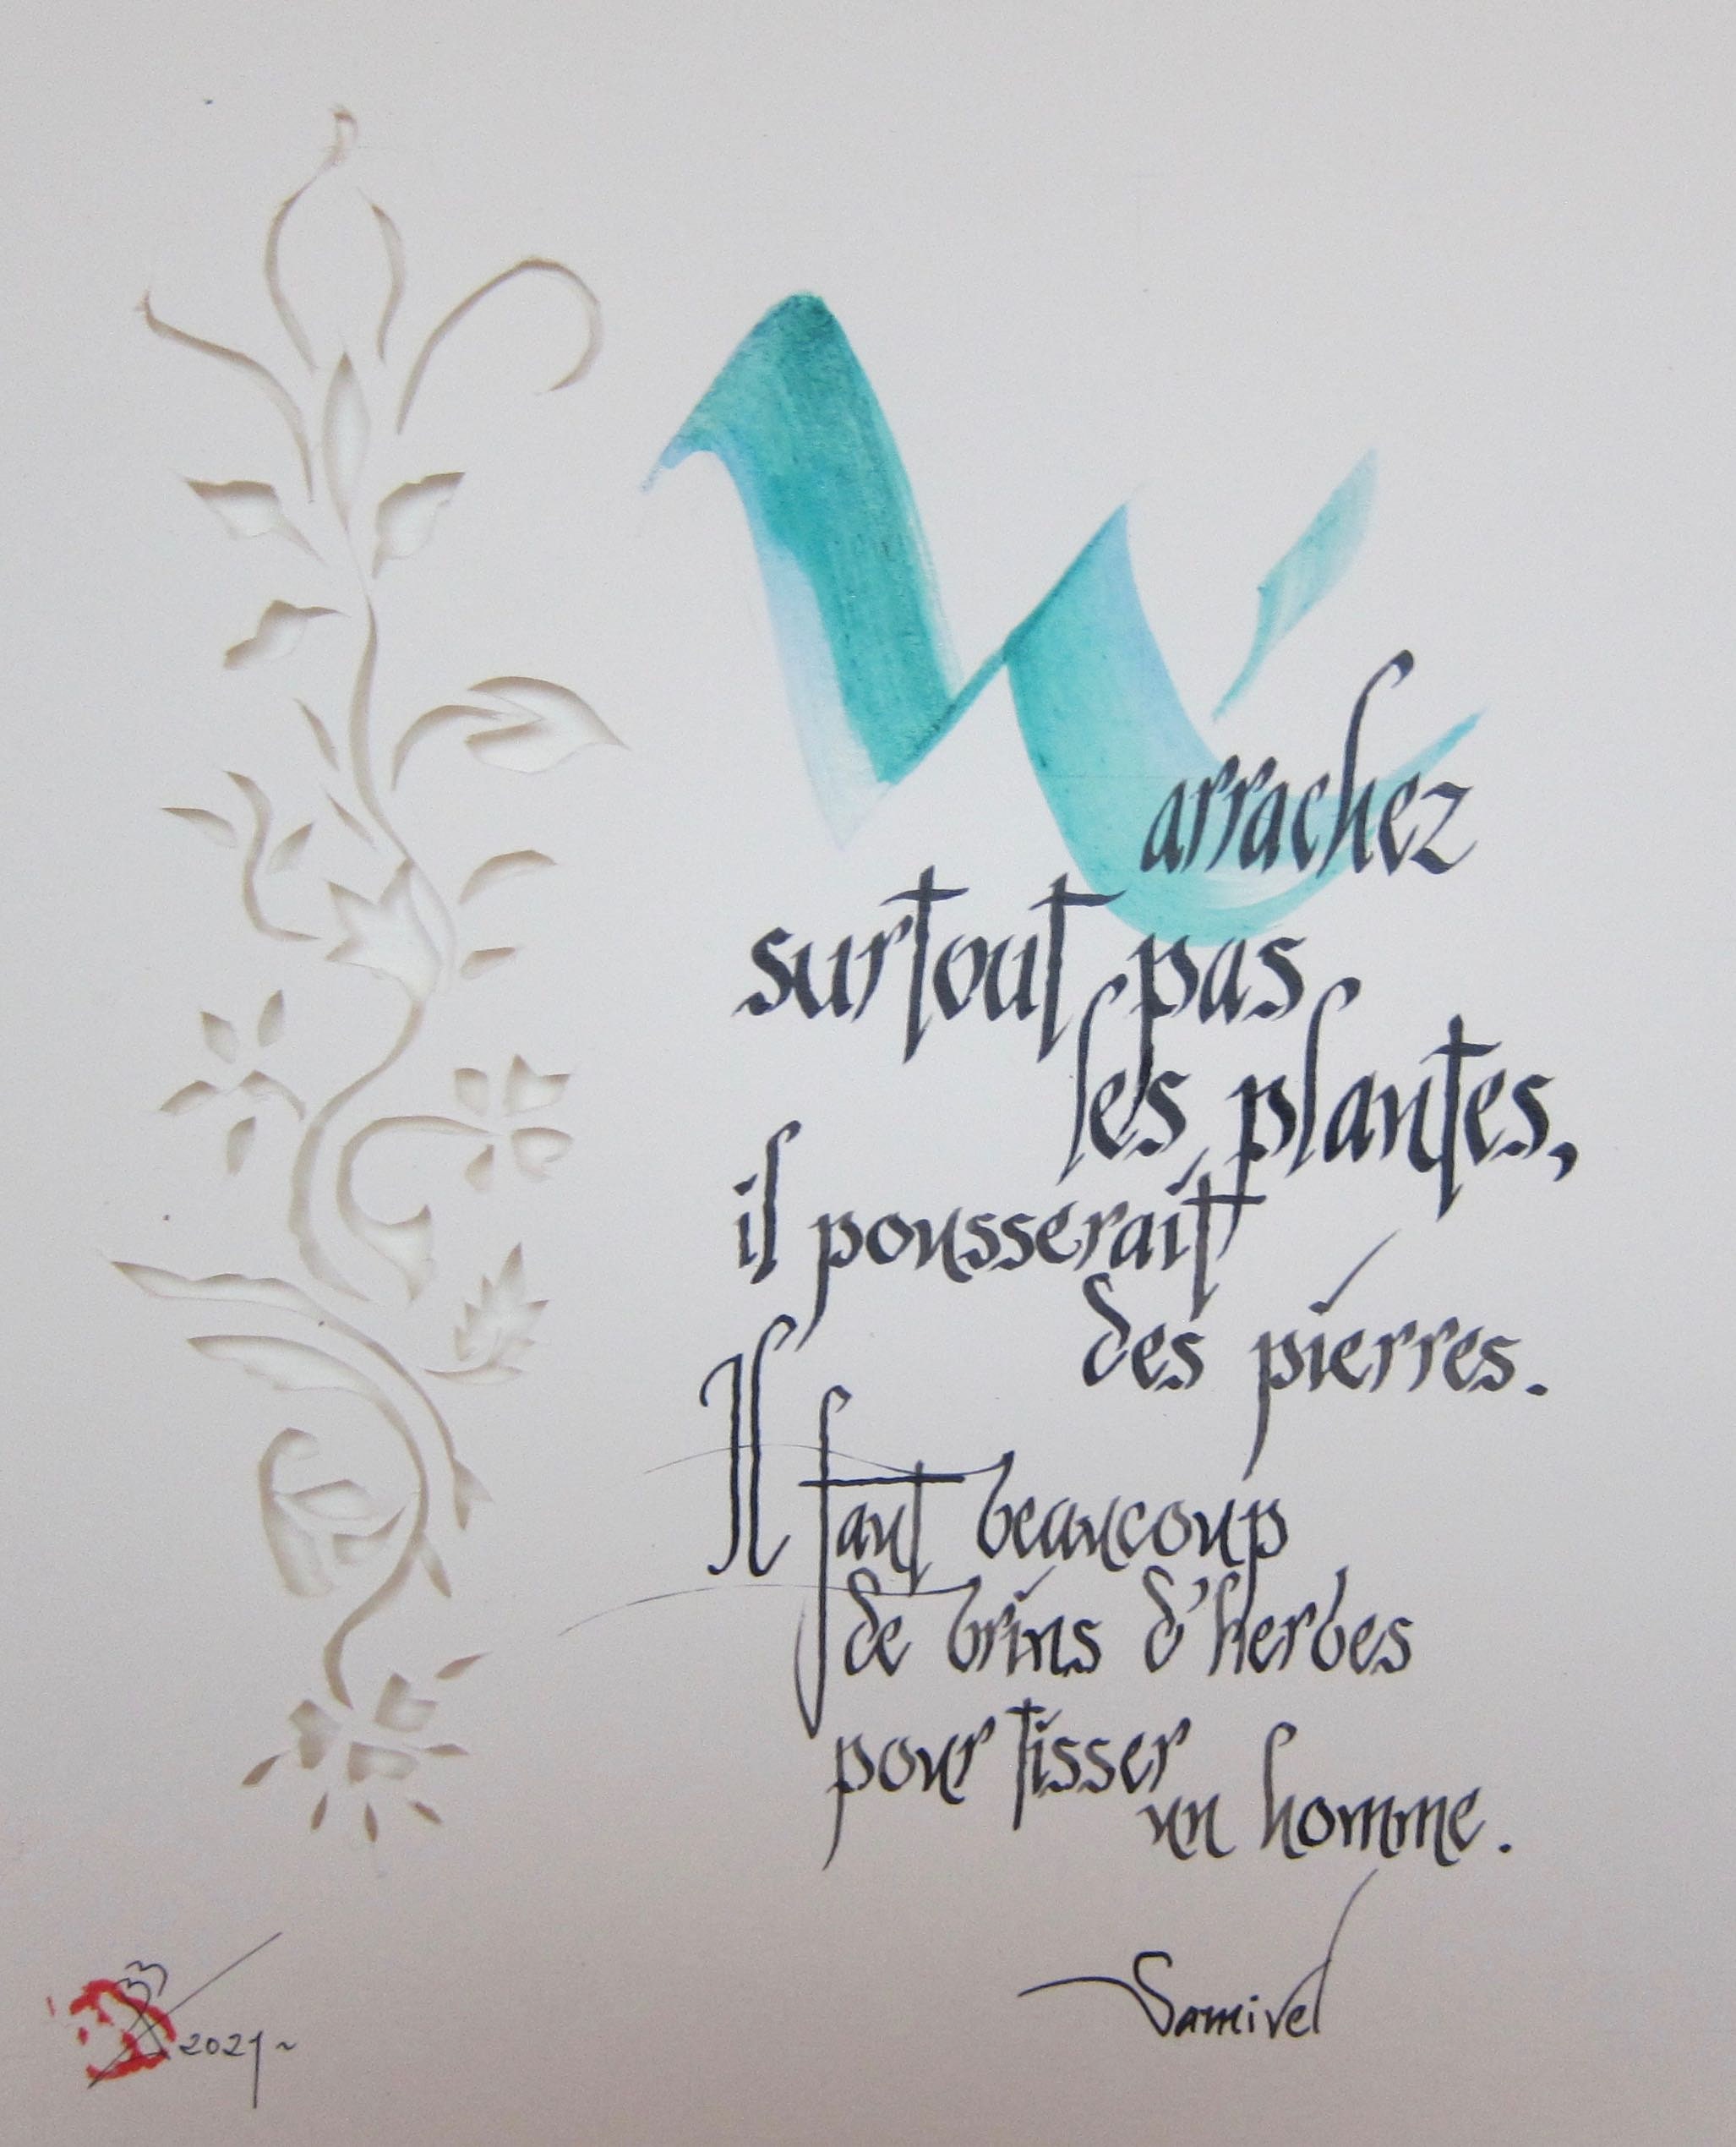 N'arrachez
surtout pas
les plantes,
il pousserait
des pierres.
Il faut beaucoup
de brins d'herbes
pour tisser
un homme.
Samivel
2021~